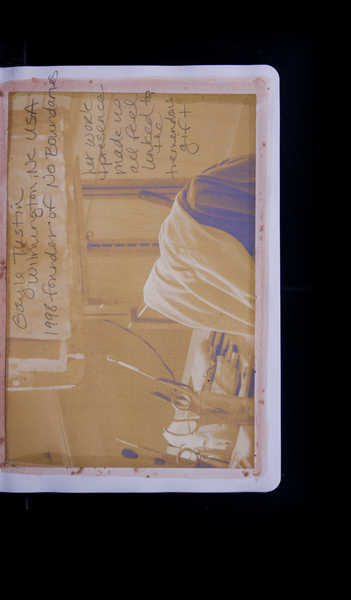 Gayle Tustin
Wilmington, NC USA
1998 founder of No Boundaries
her work
+ presence
made us
all feel
linked to
the
tremendous
gift